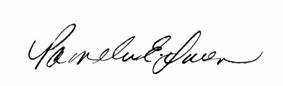 Pamela E. Owen